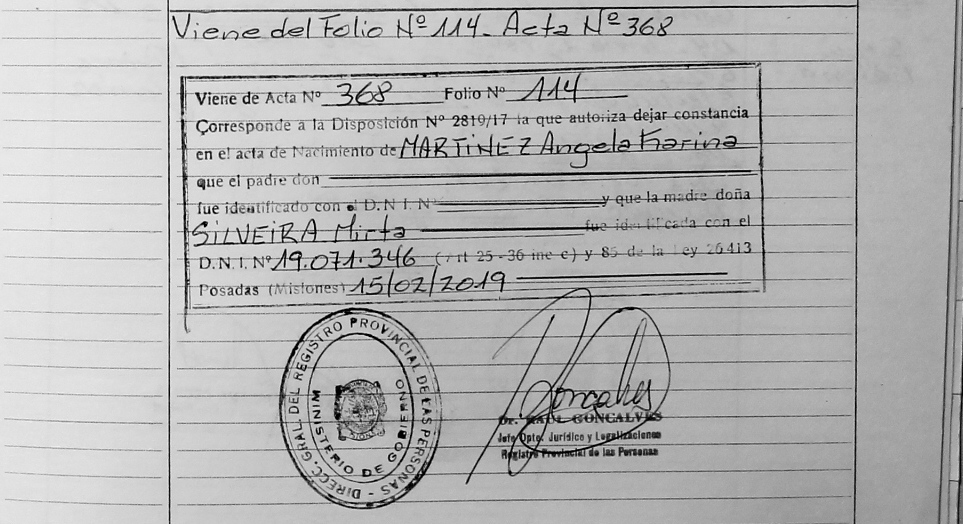 Viene del Folio Nº 114. Acta Nº 368
Viene de Acta Nº 368 Folio Nº 114
Corresponde a la Disposición Nº 2819/17 la que autoriza dejar constancia
en el acta de Nacimiento de MARTINEZ Angela Karina
que el padre don
fue identificado con el D.N.I. Nº y que la madre doña
SILVEIRA Mirta fue identificada con el
D.N.I. Nº 19.071.346 (Art 25 - 36 inc c) y 85 de la Ley 26413
Posadas (Misiones) 15/02/2019
DIRECC. GRAL. DEL REGISTRO PROVINCIAL DE LAS PERSONAS -
MINISTERIO DE GOBIERNO
Goncalves
Dr. RAUL GONCALVES
Jefe Dpto. Jurídico y Legalizaciones
Registro Provincial de las Personas